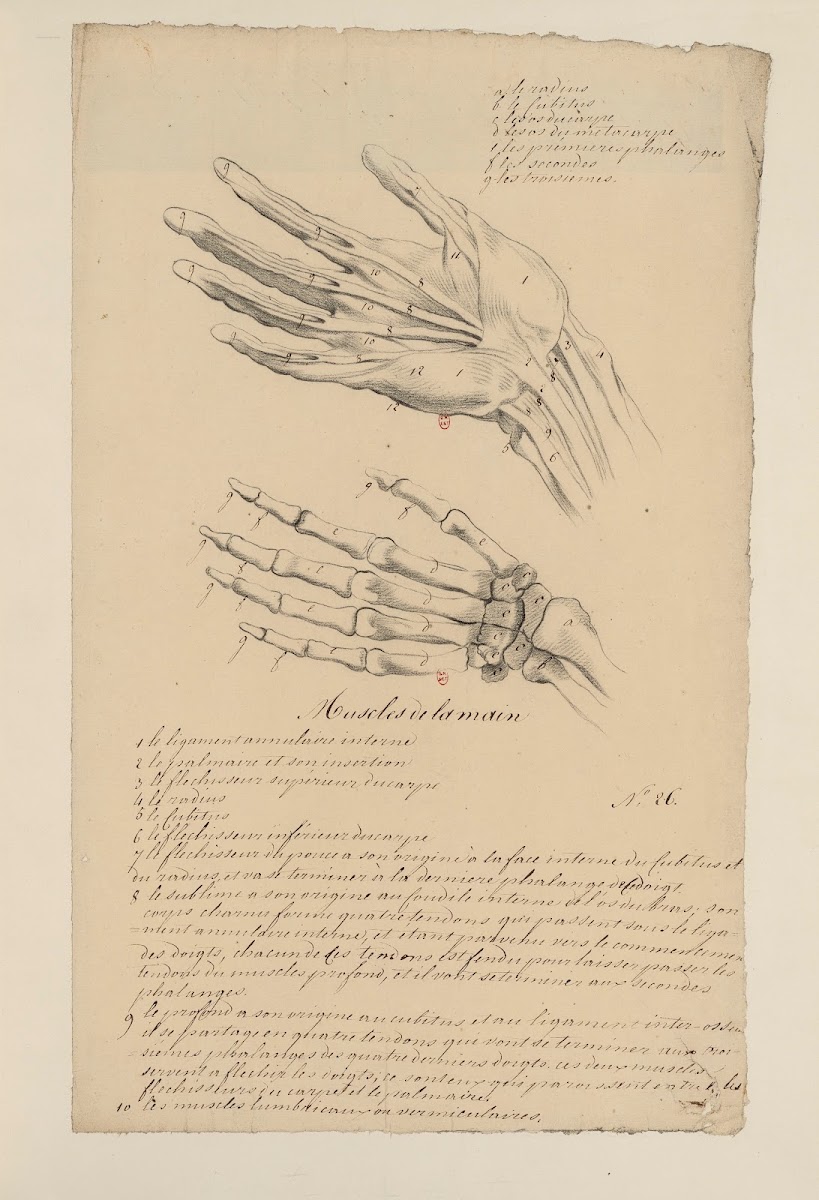 a le radius
b le Cubitus
c les os du carpe
d les os du métacarpe
e les premieres phalanges
f les secondes
g les troisiemes.
9
9
9
9
9
7
9
9
9
9
11
10
8
10
8
10
8
8
12
1
1
12
2
3
4
8
8
9
5
6
g
f
e
d
g
f
e
c
a
b
Muscles de la main
1 le ligament annulaire interne
2 le palmaire et son insertion
3 le flechisseur supérieur du carpe
4 le radius
5 le Cubitus
N.º 26.
6 le flechisseur inférieur du carpe
7 le flechisseur du pouce a son origine à la face interne du Cubitus et
du radius, et va se terminer à la derniere phalange de ce doigt.
8 le sublime a son origine au condile interne de l'os du bras; son
corps charnu forme quatre tendons qui passent sous le liga-
=ment annulaire interne, et étant parvenu vers le commencemen
des doigts, chacun de ces tendons est fendu pour laisser passer les
tendons du muscles profond, et il vont se terminer aux secondes
phalanges.
9 le profond a son origine au cubitus et au ligament inter-osseu
il se partage en quatre tendons qui vont se terminer aux troi-
=siemes phalanges des quatre derniers doigts. ces deux muscles
servent a flechir les doigts; ce sont eux qui paroissent entre les
flechisseurs du carpe et le palmaire.
10 les muscles lumbricaux ou vermiculaires.